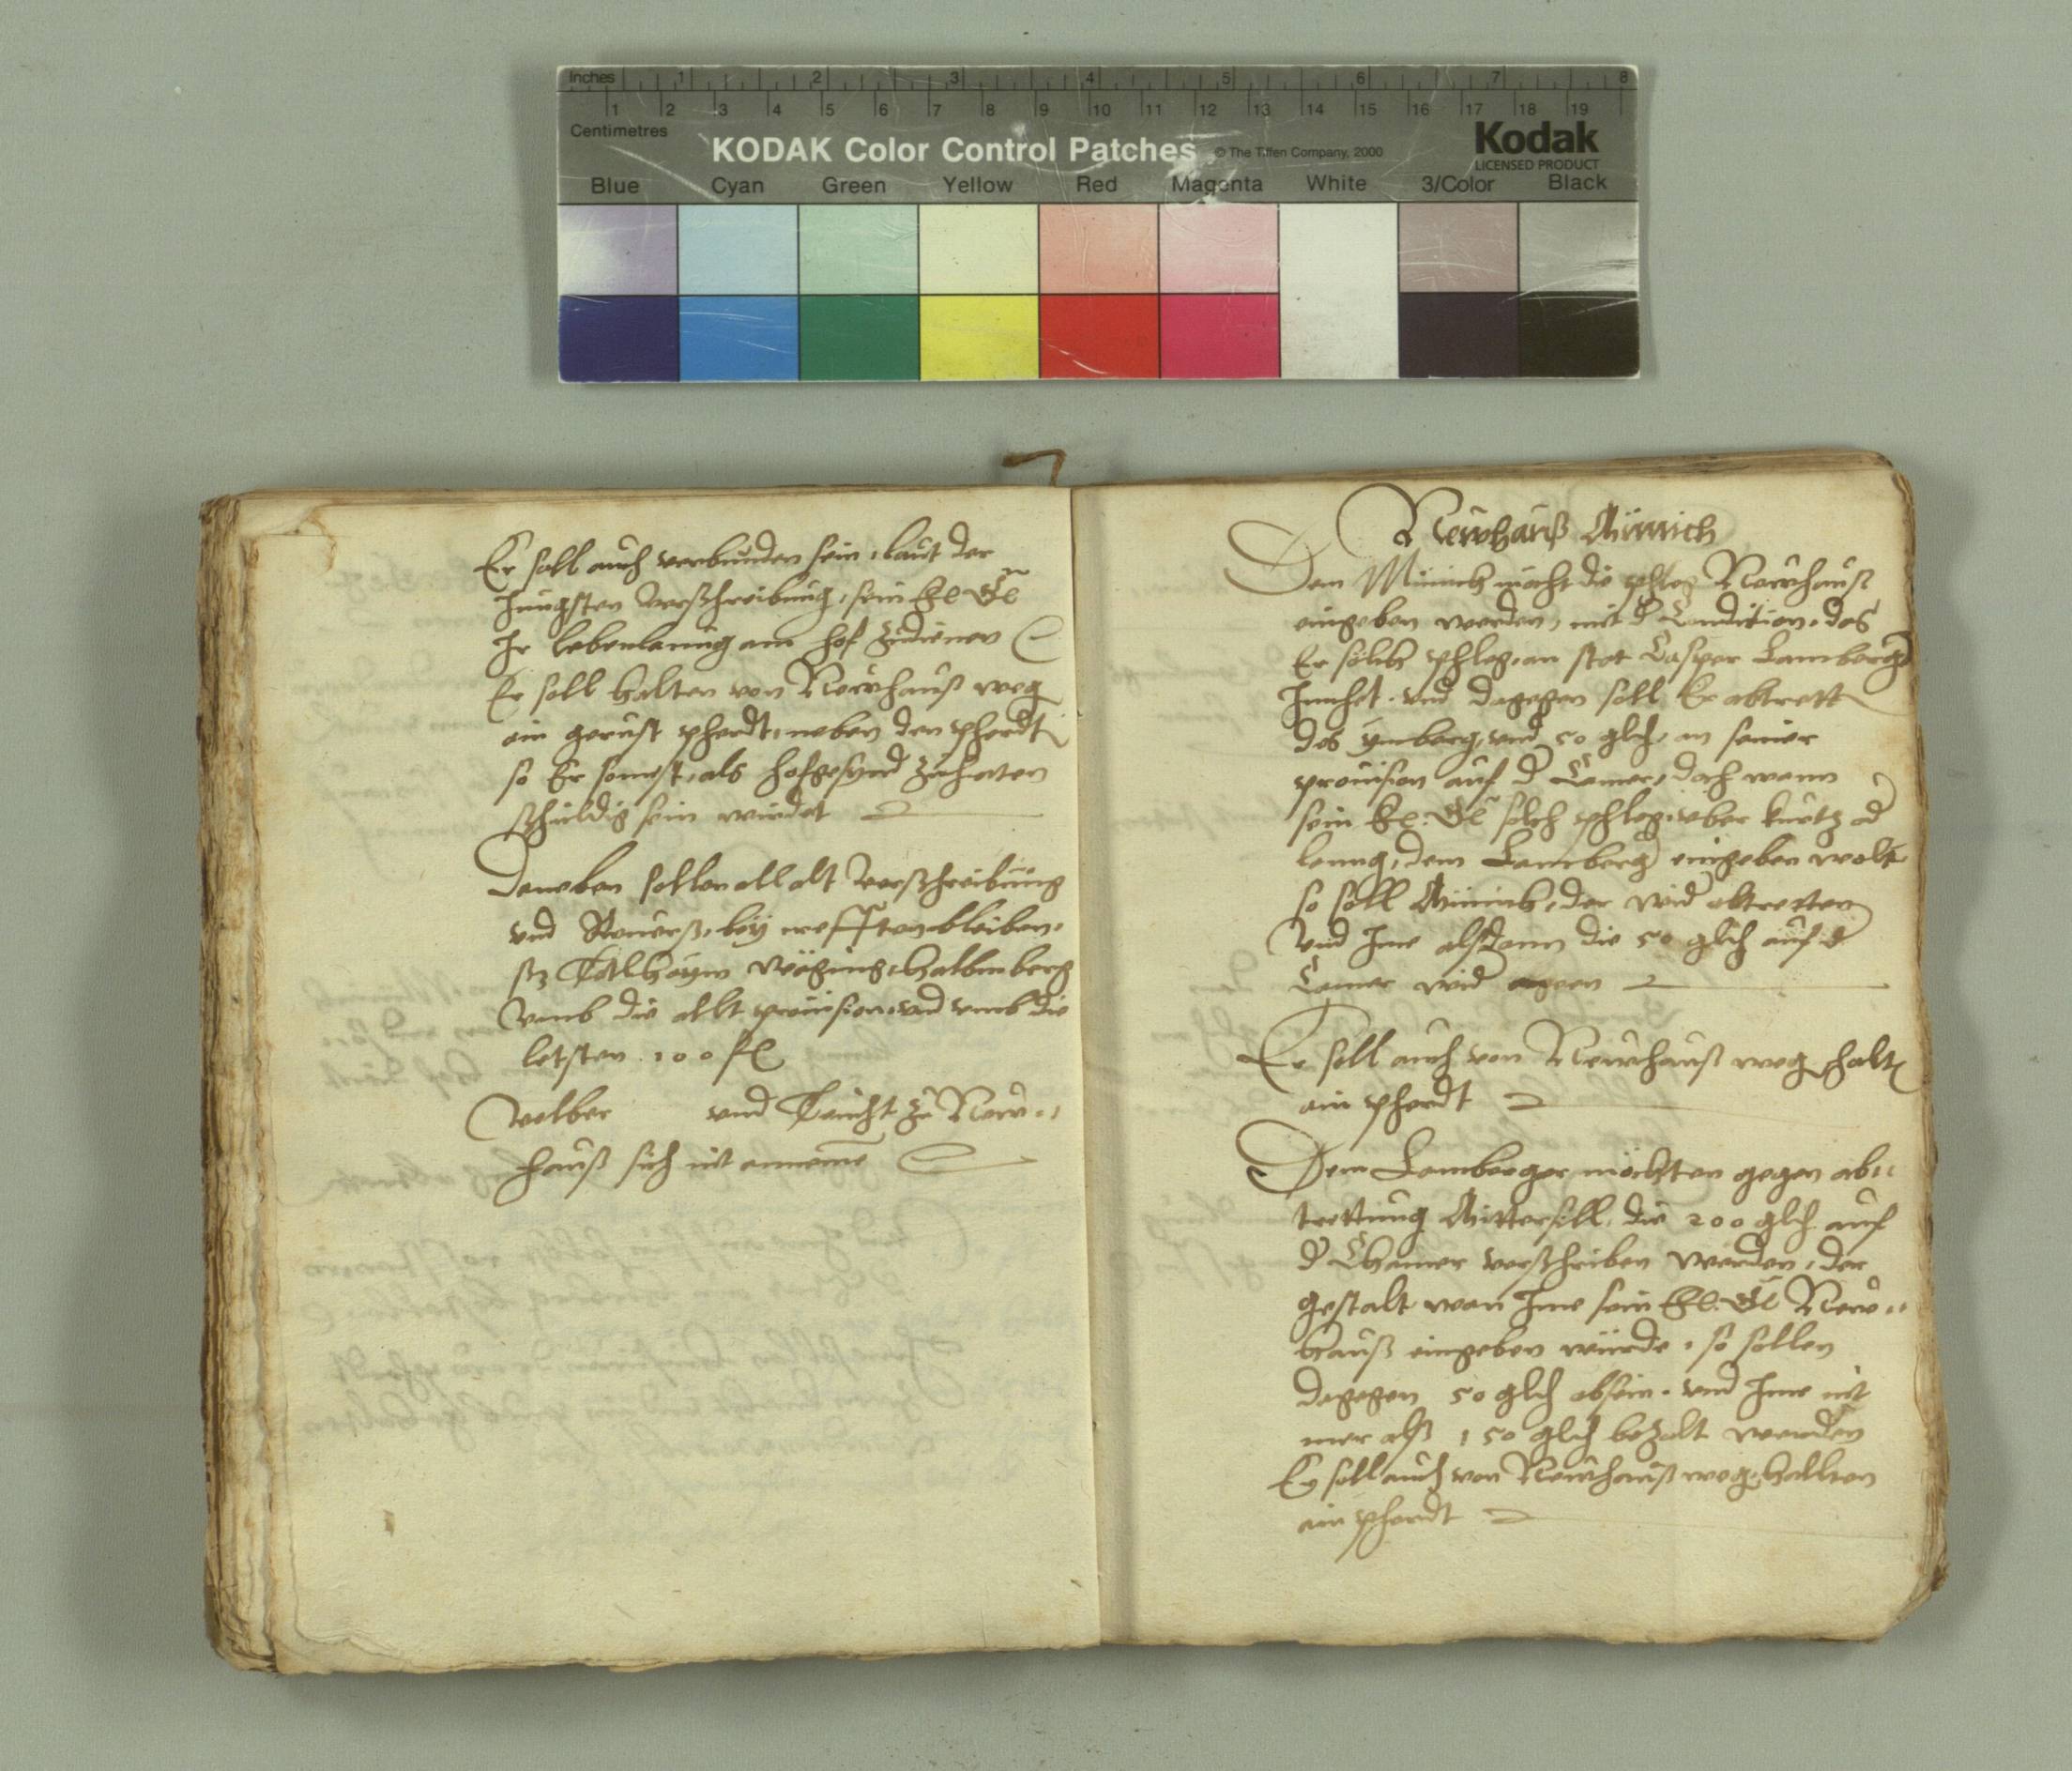 Inches 1 2 3 4 5 6 7 8
1 2 3 4 5 6 7 8 9 10 11 12 13 14 15 16 17 18 19
Centimetres
KODAK Color Control Patches © The Tiffen Company, 2000 Kodak
LICENSED PRODUCT
Blue Cyan Green Yellow Red Magenta White 3/Color Black
Er soll auch verbunden sein, laut der
Jungsten verschreibung, sein
Ir lebenlanng am hof zudienen
Er soll halten von Newhauß weg
ain gerust pherdt, neben den pherdt
so Er sonnst, als hofgesynd zuhalten
schuldig sein wirdet
Daneben sollen all alt verschreibung
vnd Reuerß, bey bleiben,
halbmberg
vmb die allt prouision, vnd vmb die
letsten 100 fl
velber vnd zu New-
hauß sich nit anneme
Newhauß Münich
Dem Münich möcht die phleg Newhauß
eingeben werden, mit d Condition, das
Er solch phleg, an stat Caspar Lamberg
Innhet. vnd dagegen soll Er abtrett
das vnd 50 glch, an seiner
prouision auf d Camer, doch wann
sein solch phleg, vber kurtz od
lanng, dem Lamberg eingeben wolt
so soll Münich, der wid abtretten
Vnd Ime alsdann die 50 glch auf d
Camer wid
Er soll auch von Newhauß weg halt
ain pherdt
Dem Lamberger möchten gegen ab-
trettung Mittersill, die 200 glch auf
d Chamer verschriben werden, der
gestalt wan Ime sein New-
hauß eingeben würde, so sollen
dagegen 50 glch absein. vnd Ime nit
mer alß 150 glch bezalt werden
Er soll auch von Newhauß weg, hallten
ain pherdt